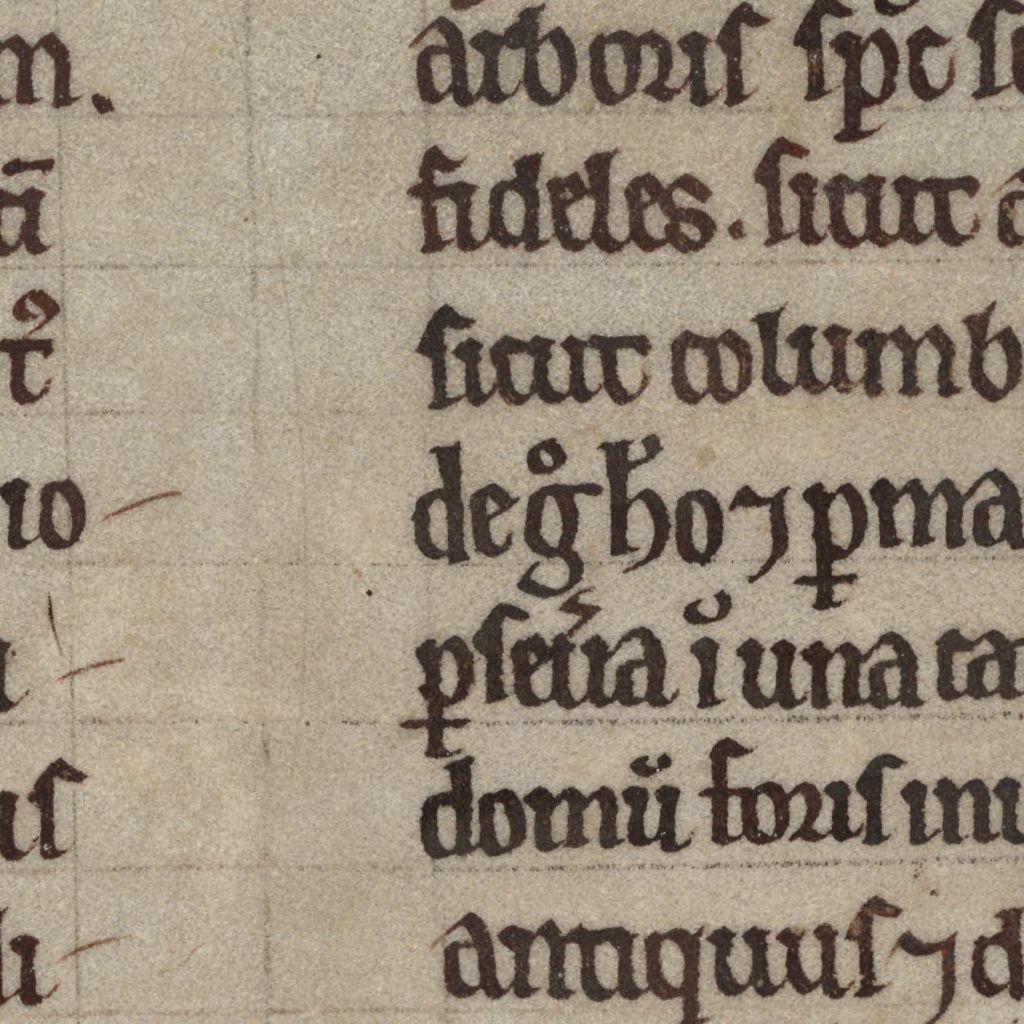 m.
ā
io
us
arboris sp̄c
fideles. sicut
sicut columb
deg̊ ħo ⁊ ꝑma
ꝑseu͛a i̊ una ta
domū foris inu
antiquus ⁊ d